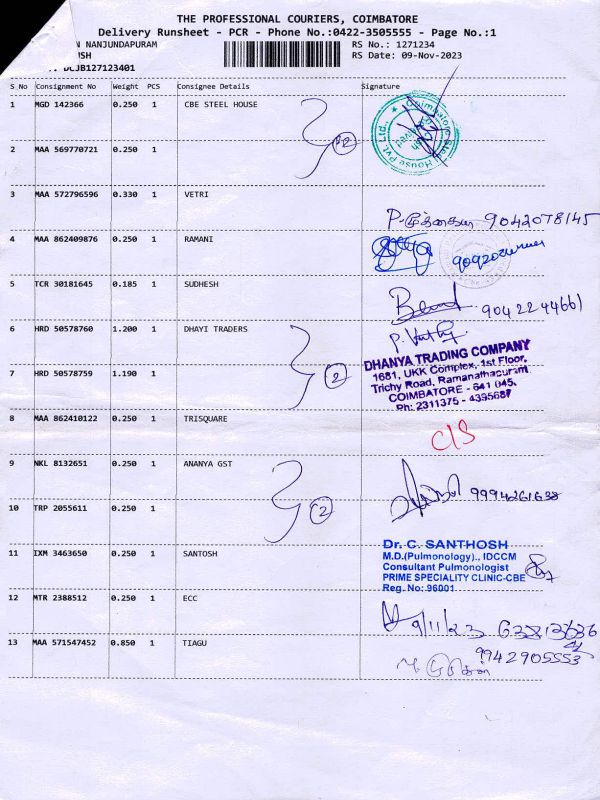 THE PROFESSIONAL COURIERS, COIMBATORE
Delivery Runsheet - PCR - Phone No.:0422-3505555 - Page No.:1
N NANJUNDAPURAM RS No.: 1271234
SH RS Date: 09-Nov-2023
DCJB127123401
S No Consignment No Weight PCS Consignee Details Signature
1 MGD 142366 0.250 1 CBE STEEL HOUSE
2 MAA 569770721 0.250 1
Coimbatore Steel House Pvt. Ltd.,
3 MAA 572796596 0.330 1 VETRI
9042078145
4 MAA 862409876 0.250 1 RAMANI
5 TCR 30181645 0.185 1 SUDHESH
9042244661
6 HRD 50578760 1.200 1 DHAYI TRADERS
7 HRD 50578759 1.190 1
2
DHANYA TRADING COMPANY
1681, UKK Complex, 1st Floor,
Trichy Road, Ramanathapuram
COIMBATORE - 641 045.
Ph: 2311375 - 4395687
8 MAA 862410122 0.250 1 TRISQUARE
C/S
9 NKL 8132651 0.250 1 ANANYA GST
9994261638
10 TRP 2055611 0.250 1
2
11 IXM 3463650 0.250 1 SANTOSH
Dr. C. SANTHOSH
M.D.(Pulmonology)., IDCCM
Consultant Pulmonologist
PRIME SPECIALITY CLINIC-CBE
Reg. No: 96001
12 MTR 2388512 0.250 1 ECC
9/11/23
13 MAA 571547452 0.850 1 TIAGU
9942905553